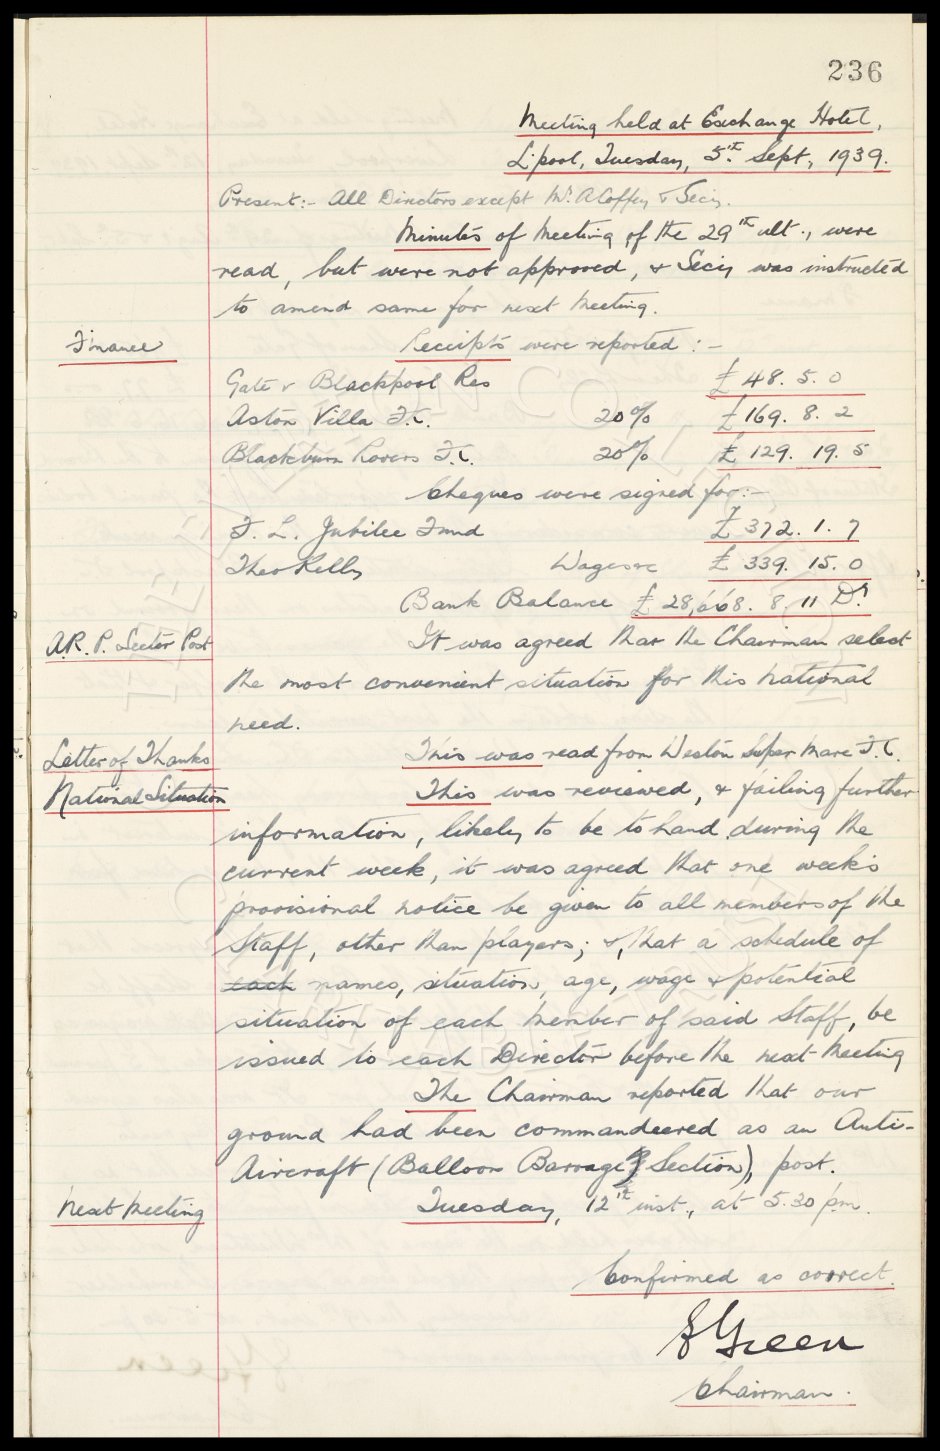 236
Meeting held at Exchange Hotel,
L'pool, Tuesday, 5th Sept, 1939.
Present:- All Directors except Mr. A Coffey & Secy.
Minutes of Meeting of the 29th ult., were
read, but were not approved, & Secy was instructed
to amend same for next Meeting.
Finance Receipts were reported :-
Gate v Blackpool Res £ 48. 5. 0
Aston Villa F.C. 20% £ 169. 8. 2
Blackburn Rovers F.C. 20% £ 129. 19. 5
Cheques were signed for:-
F. L. Jubilee Fund £ 372. 1. 7
Theo Kelly Wages &c £ 339. 15. 0
Bank Balance £ 28,668. 8. 11 Dr.
A.R.P. Sector Post It was agreed that the Chairman select
the most convenient situation for this national
need.
Letter of Thanks This was read from Weston Super Mare F.C.
National Situation This was reviewed, & failing further
information, likely to be to hand during the
current week, it was agreed that one week's
provisional notice be given to all members of the
Staff, other than players; &, that a schedule of
each names, situation, age, wage & potential
situation of each member of said Staff, be
issued to each Director before the next Meeting
The Chairman reported that our
ground had been commandeered as an Anti-
Aircraft (Balloon Barrage Section), post.
Next Meeting Tuesday, 12th inst., at 5.30 p.m.
Confirmed as correct.
E Green
Chairman.